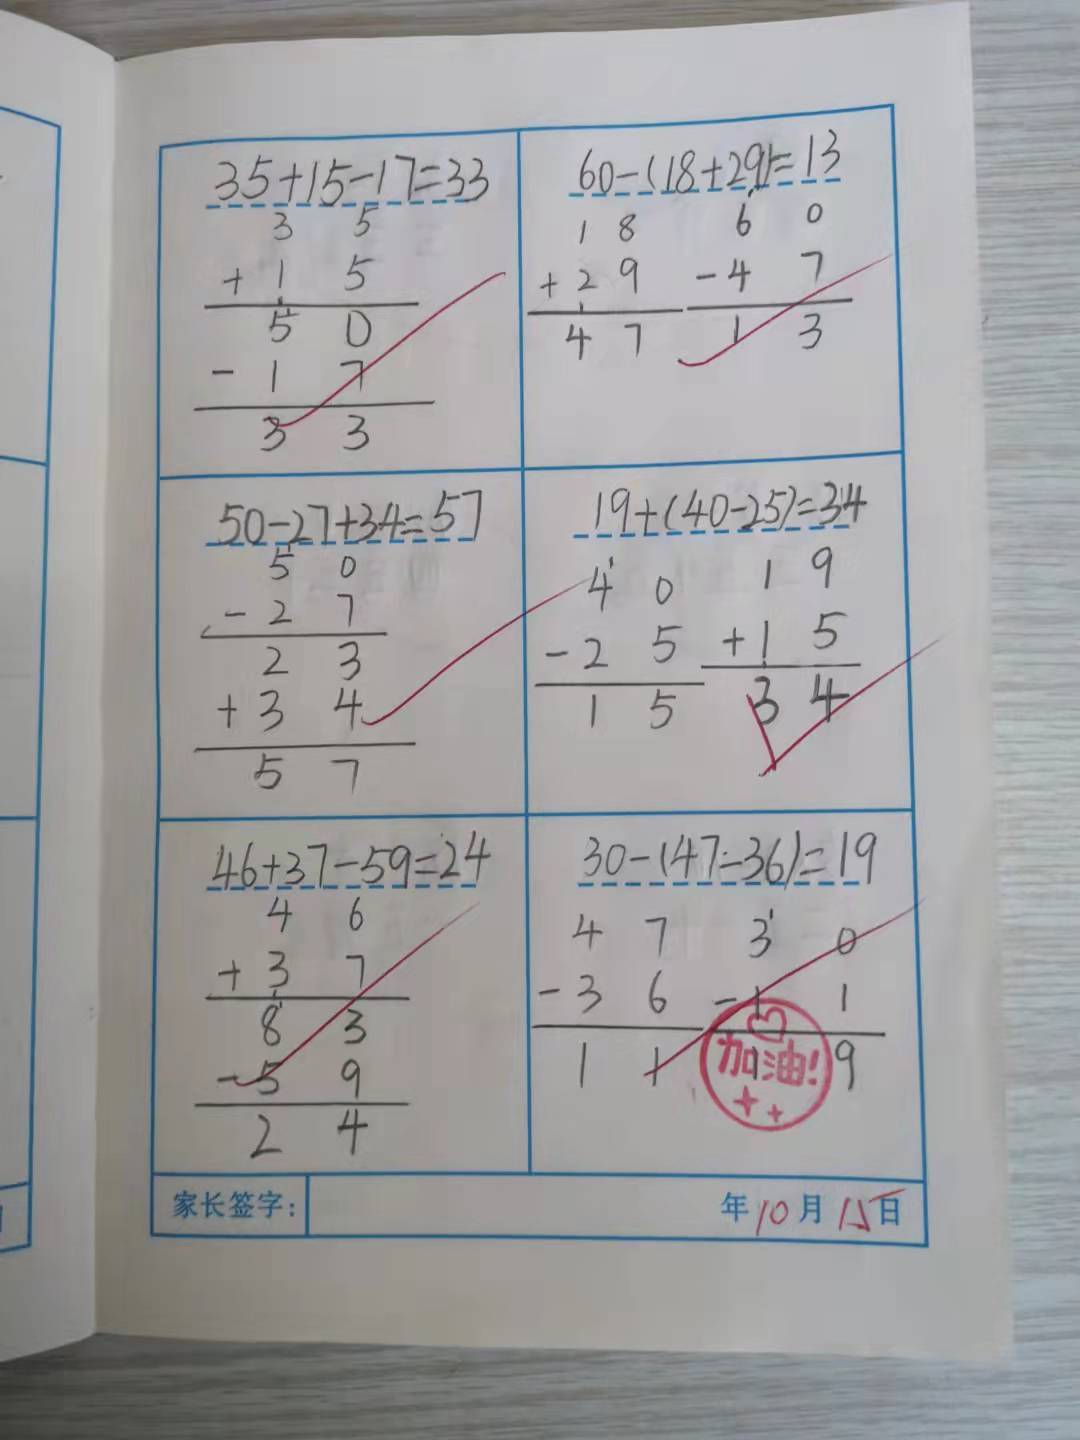 35+15-17=33
3 5
+ 1 5
5 0
- 1 7
3 3
60-(18+29)=13
1 8 6 0
+ 2 9 - 4 7
4 7 1 3
50-27+34=57
5 0
- 2 7
2 3
+ 3 4
5 7
19+(40-25)=34
4 0 1 9
- 2 5 + 1 5
1 5 3 4
46+37-59=24
4 6
+ 3 7
8 3
- 5 9
2 4
30-(47-36)=19
4 7 3 0
- 3 6 - 1 1
1 1 1 9
加油!
家长签字: 年10月15日